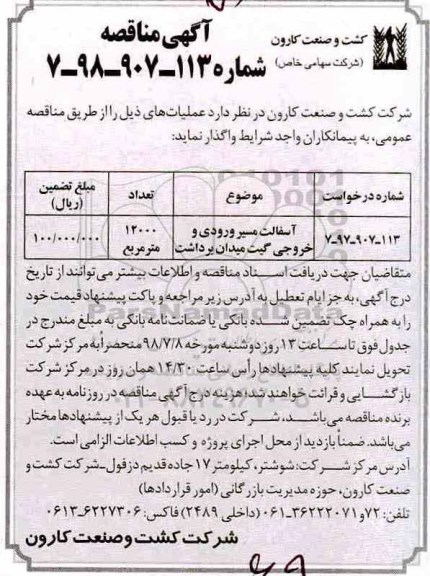 کشت و صنعت کارون
(شرکت سهامی خاص)
آگهی مناقصه
شماره ۱۱۳_۹۰۷_۹۸_۷
شرکت کشت و صنعت کارون در نظر دارد عملیات‌های ذیل را از طریق مناقصه
عمومی، به پیمانکاران واجد شرایط واگذار نماید:
شماره درخواست موضوع تعداد مبلغ تضمین (ریال)
۱۱۳_۹۰۷_۹۷_۷ آسفالت مسیر ورودی و خروجی گیت میدان برداشت ۱۲۰۰۰ مترمربع ۱۰۰/۰۰۰/۰۰۰
متقاضیان جهت دریافت اسناد مناقصه و اطلاعات بیشتر می‌توانند از تاریخ
درج آگهی، به جز ایام تعطیل به آدرس زیر مراجعه و پاکت پیشنهاد قیمت خود
را به همراه چک تضمین شده بانکی یا ضمانت‌نامه بانکی به مبلغ مندرج در
جدول فوق تا ساعت ۱۳ روز دوشنبه مورخه ۹۸/۷/۸ منحصراً به مرکز شرکت
تحویل نمایند کلیه پیشنهادها رأس ساعت ۱۴/۳۰ همان روز در مرکز شرکت
بازگشایی و قرائت خواهند شد؛ هزینه درج آگهی مناقصه در روزنامه به عهده
برنده مناقصه می‌باشد، شرکت در رد یا قبول هر یک از پیشنهادها مختار
می‌باشد. ضمناً بازدید از محل اجرای پروژه و کسب اطلاعات الزامی است.
آدرس مرکز شرکت: شوشتر، کیلومتر ۱۷ جاده قدیم دزفول_شرکت کشت و
صنعت کارون، حوزه مدیریت بازرگانی (امور قراردادها)
تلفن: ۷۲ و ۳۶۲۲۲۰۷۱-۰۶۱ (داخلی ۲۴۸۹) فاکس: ۶۲۲۷۳۰۶-۰۶۱۳
شرکت کشت و صنعت کارون
ParsNamadData